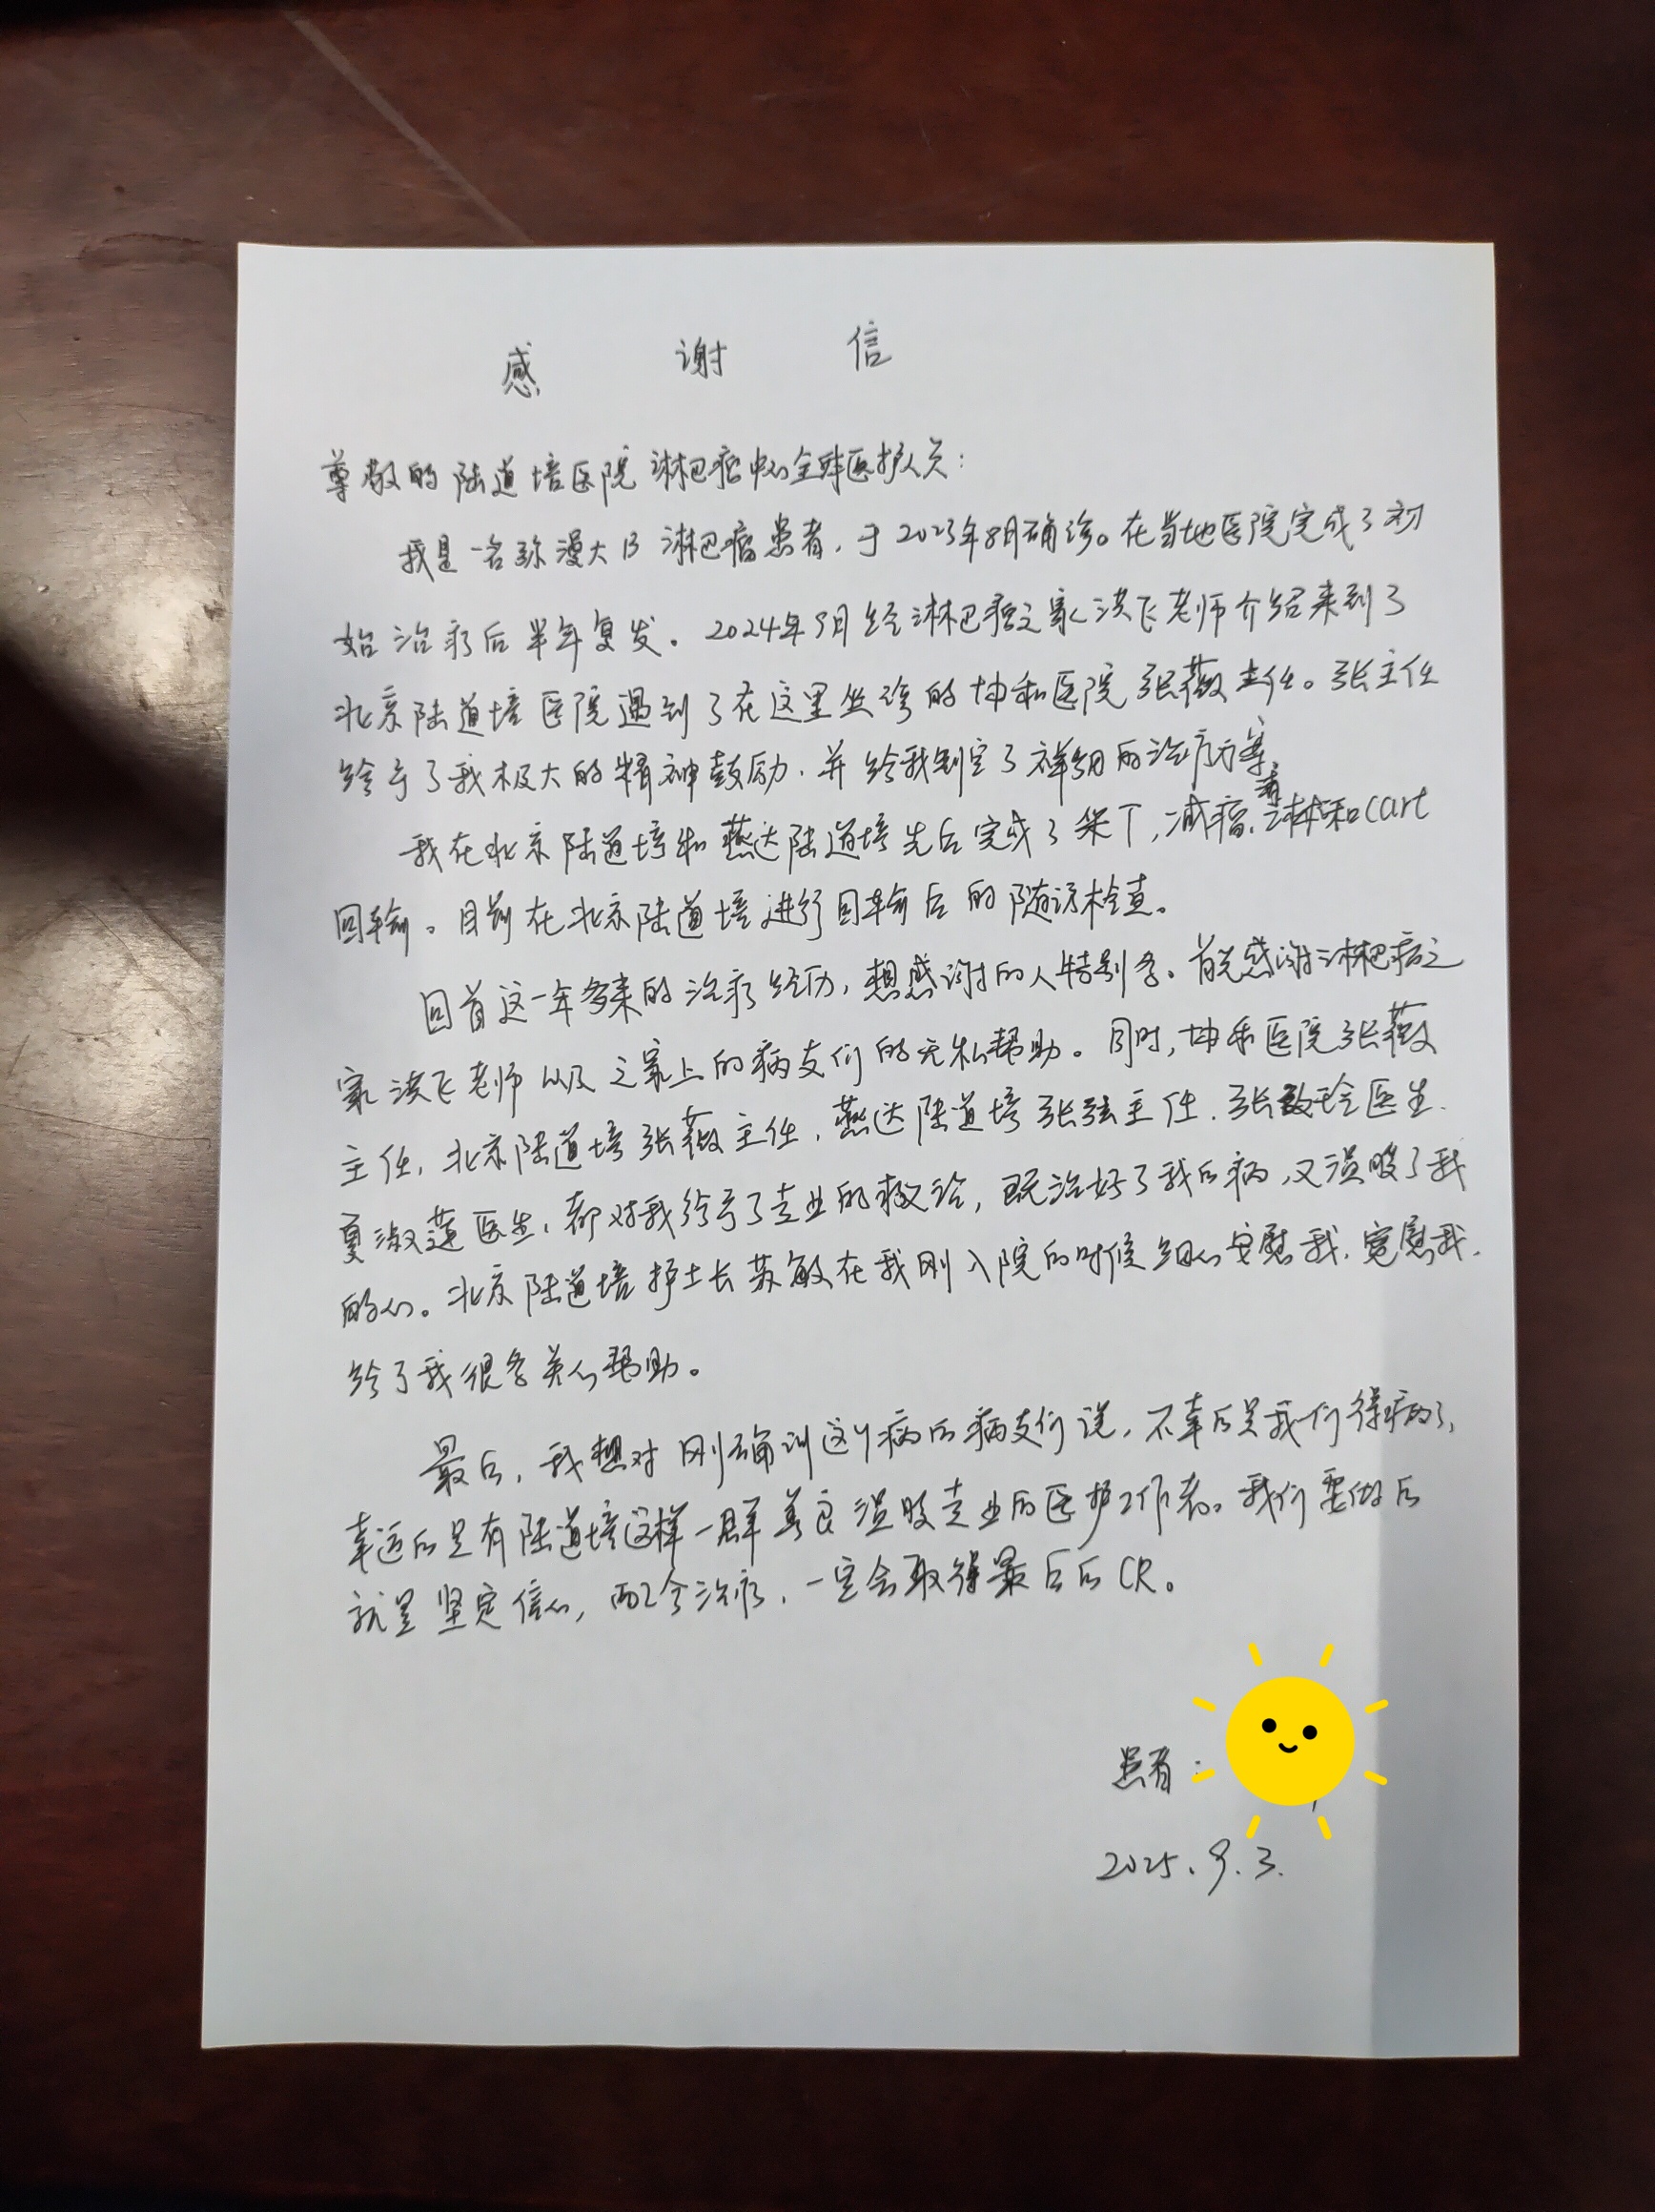 感 谢 信
尊敬的陆道培医院淋巴瘤中心全体医护人员：
我是一名弥漫大B淋巴瘤患者，于2023年8月确诊。在当地医院完成了初
始治疗后半年复发。2024年9月经淋巴瘤之家洪飞老师介绍来到了
北京陆道培医院遇到了在这里坐诊的坤和医院张薇主任。张主任
给予了我极大的精神鼓励，并给我制定了详细的治疗方案。
我在北京陆道培和燕达陆道培先后完成了采T，减瘤，清淋和cart
回输。目前在北京陆道培进行回输后的随访检查。
回首这一年多来的治疗经历，想感谢的人特别多。首先感谢淋巴瘤之
家洪飞老师以及之家上的病友们的无私帮助。同时，坤和医院张薇
主任，北京陆道培张薇主任，燕达陆道培张弦主任，张玲医生，
夏淑莲医生，都对我给予了专业的救治，既治好了我的病，又温暖了我
的心。北京陆道培护士长苏敏在我刚入院的时候细心安慰我，宽慰我，
给了我很多关心帮助。
最后，我想对刚确诊这个病的病友们说，不幸的是我们得病了，
幸运的是有陆道培这样一群善良温暖专业的医护工作者。我们要做的
就是坚定信心，配合治疗，一定会取得最后的CR。
患者：
2025.9.3.